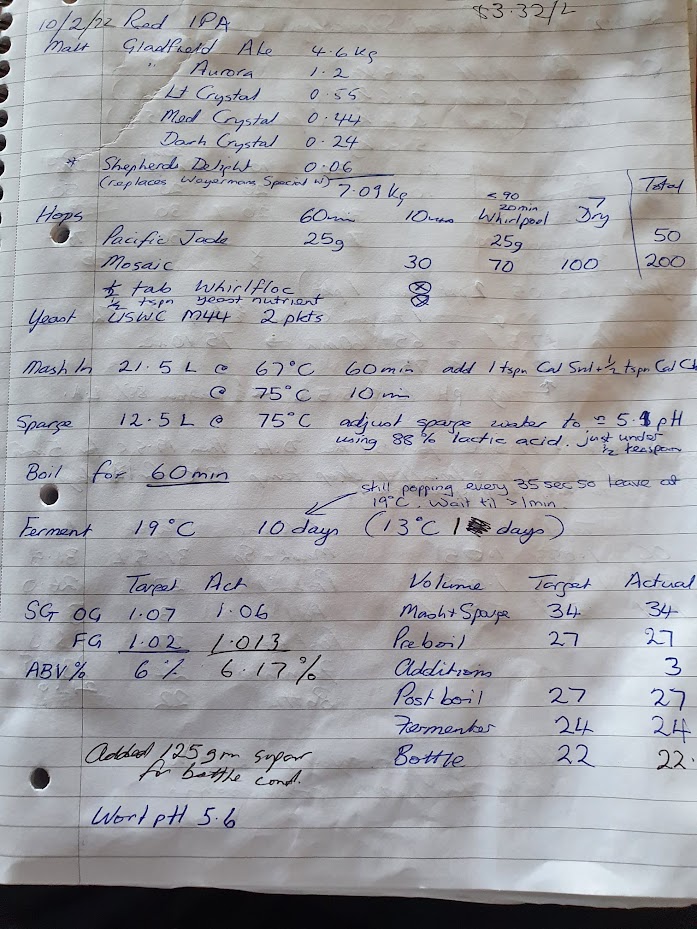 $3.32/L
10/2/22 Red IPA
Malt Gladfield Ale 4.6 kg
" Aurora 1.2
Lt Crystal 0.55
Med Crystal 0.44
Dark Crystal 0.24
* Shepherds Delight 0.06
(replaces Weyermans Special W) 7.09 kg
Hops 60min 10mins <90 20min Whirlpool Dry Total
Pacific Jade 25g 25g 50
Mosaic 30 70 100 200
½ tab Whirlfloc ⊗
½ tspn yeast nutrient ⊗
Yeast USWC M44 2 pkts
Mash In 21.5 L @ 67°C 60min add 1 tspn Cal Sul + ½ tspn Cal Ch
@ 75°C 10 min
Sparge 12.5 L @ 75°C adjust sparge water to = pH
using 88% lactic acid. just under
½ teaspoon
Boil for 60min
still popping every 35 sec so leave at
19°C. Wait til >1min.
Ferment 19°C 10 days (13°C days)
Target Act Volume Target Actual
SG OG 1.07 1.06 Mash + Sparge 34 34
FG 1.02 1.013 Preboil 27 27
ABV% 6% 6.17% Additions 3
Post boil 27 27
Fermenter 24 24
Added 125gm sugar Bottle 22 22.
for bottle cond.
Wort pH 5.6